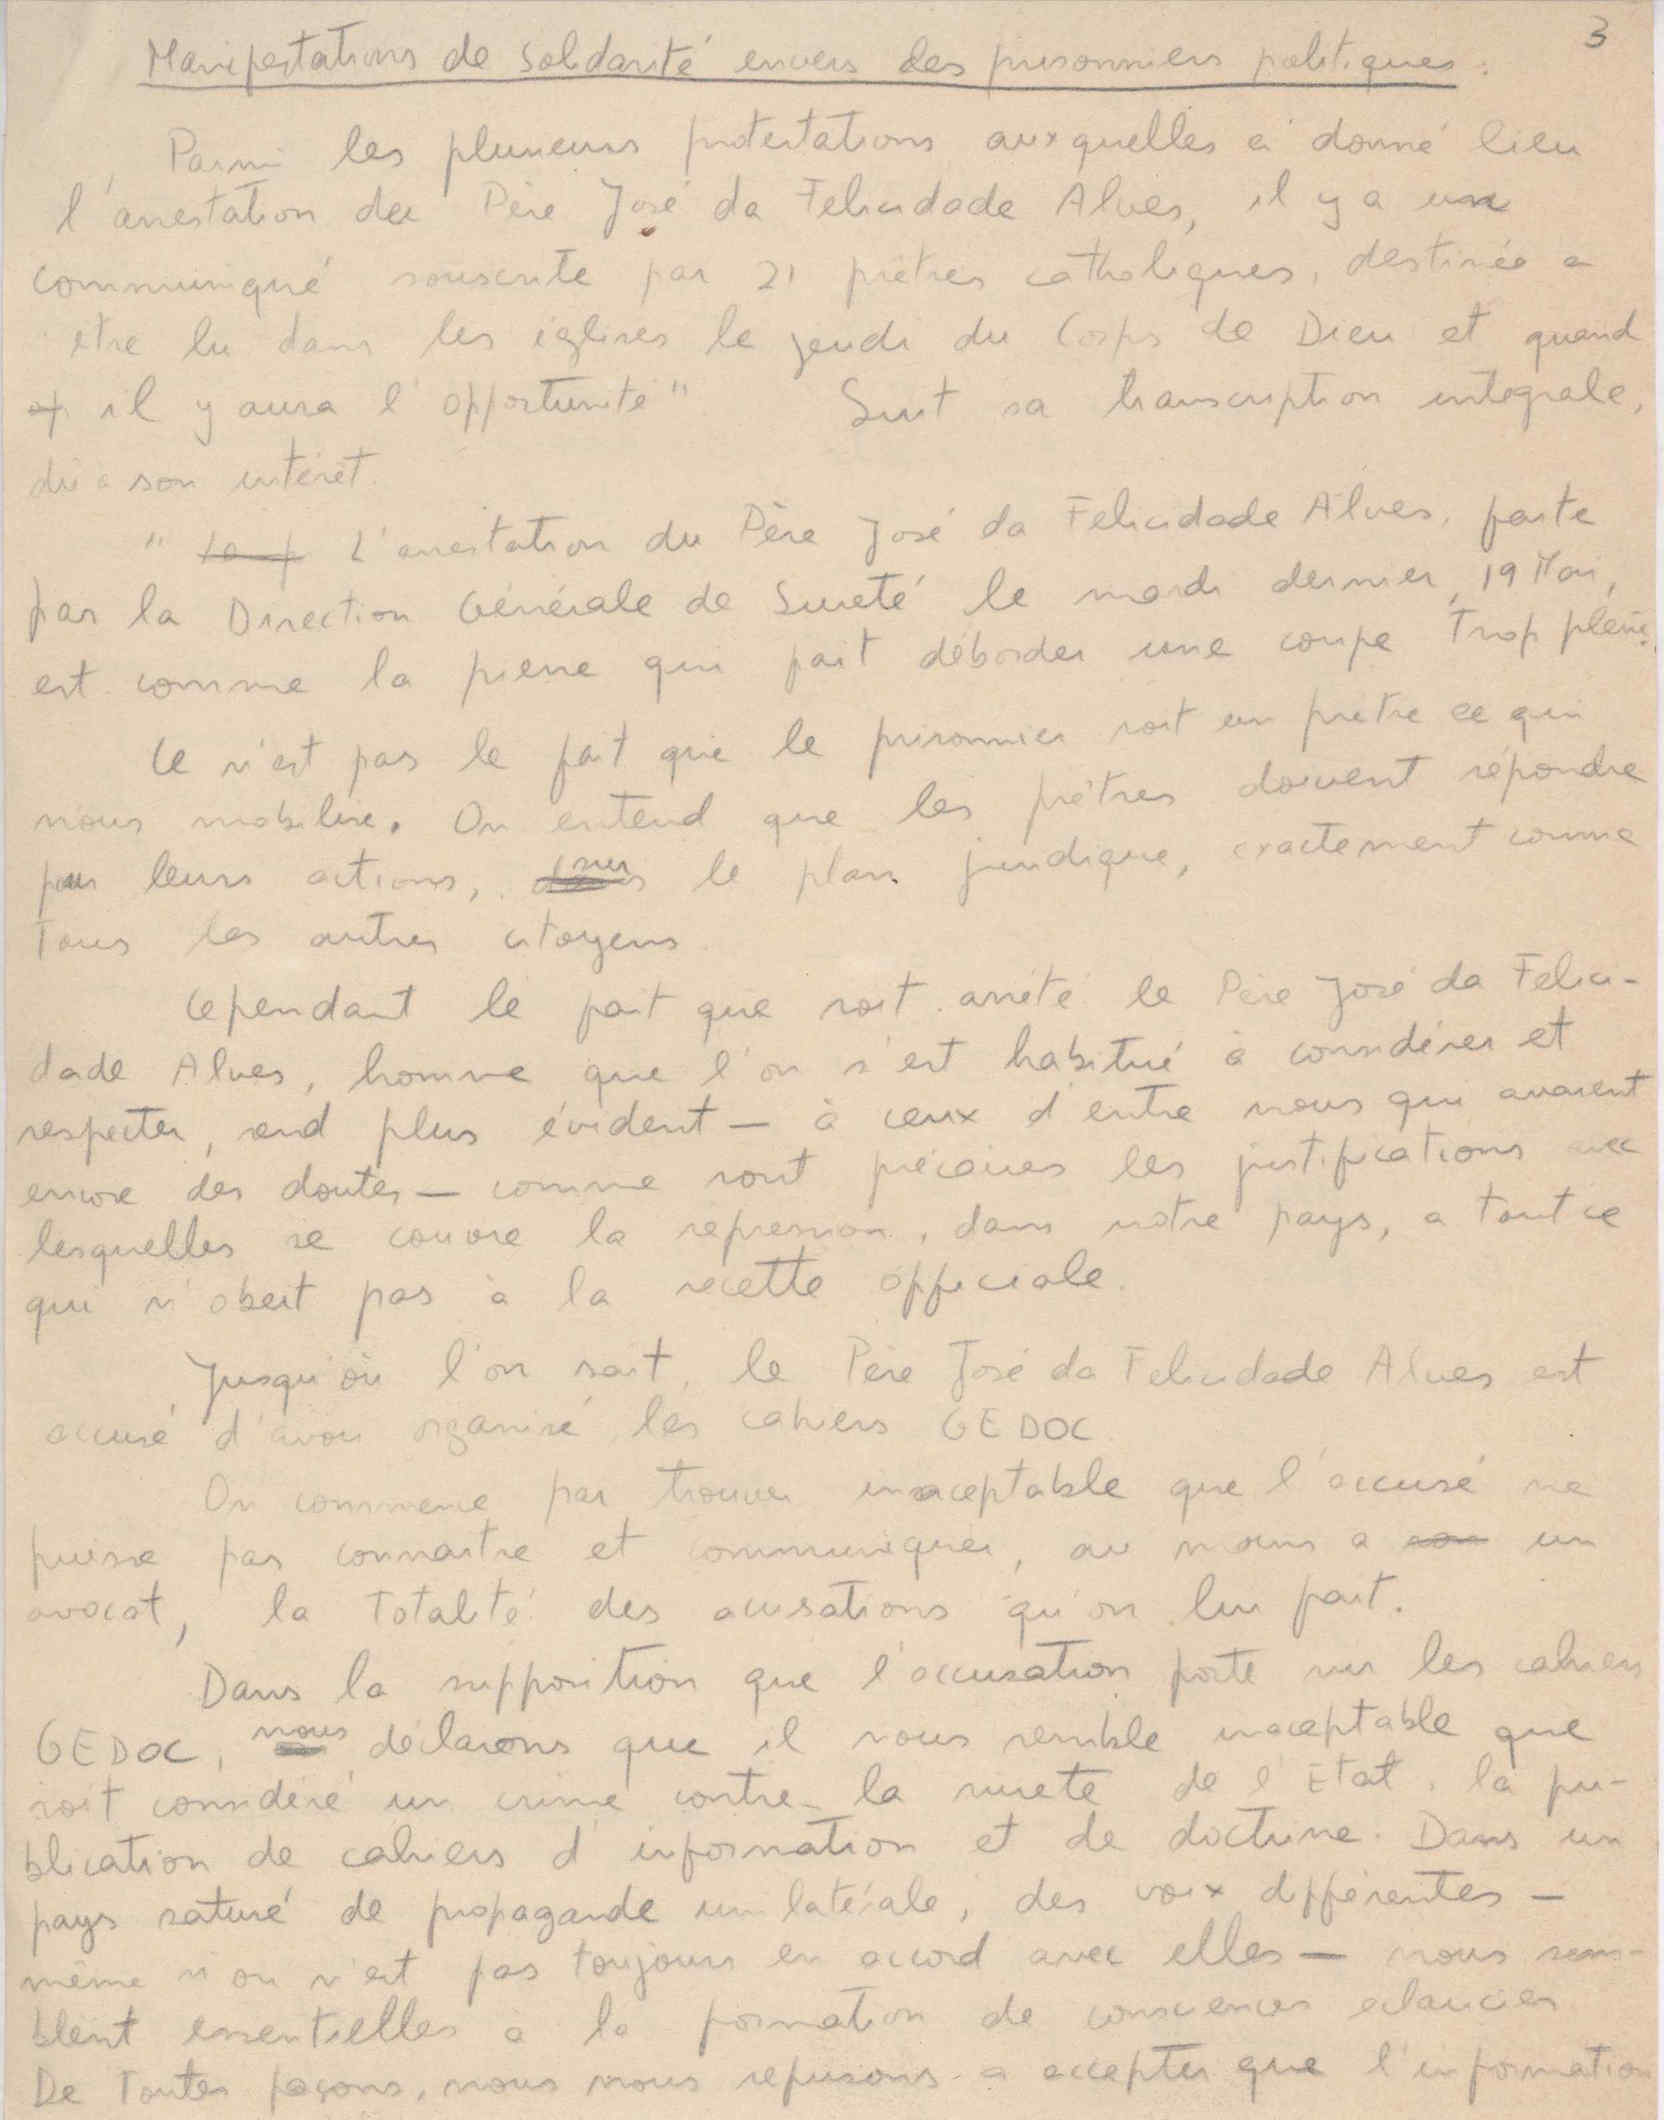 3
Manifestations de solidarité envers des prisonniers politiques :
Parmi les plusieurs protestations auxquelles a donné lieu
l'arrestation du Père José da Felicidade Alves, il y a un
communiqué souscrite par 21 prêtres catholiques, destinée a
être lu dans les églises le jeudi du Corps de Dieu et quand
il y aura l'opportunité" Suit sa transcription integrale,
dû a son intérêt.
" L'arrestation du Père José da Felicidade Alves, faite
par la Direction Générale de Sureté le mardi dernier, 19 Mai,
est comme la pierre qui fait déborder une coupe trop pleine.
Ce n'est pas le fait que le prisonnier soit un prêtre ce qui
nous mobilise. On entend que les prêtres doivent répondre
pour leurs actions, sur le plan juridique, exactement comme
tous les autres citoyens.
Cependant le fait que soit arrêté le Père José da Felici-
dade Alves, homme que l'on s'est habitué à considérer et
respecter, rend plus évident — à ceux d'entre nous qui avaient
encore des doutes — comme sont précaires les justifications avec
lesquelles se couvre la repression, dans notre pays, a tout ce
qui n'obeit pas à la recette officiale.
Jusqu'où l'on sait, le Père José da Felicidade Alves est
accusé d'avoir organisé les cahiers GEDOC.
On commence par trouver inaceptable que l'accusé ne
puisse pas connaitre et communiquer, au moins a un
avocat, la totalité des acusations qu'on lui fait.
Dans la supposition que l'accusation porte sur les cahiers
GEDOC, nous déclarons que il nous semble inaceptable que
soit considéré un crime contre la sureté de l'Etat, la pu-
blication de cahiers d'information et de doctrine. Dans un
pays saturé de propagande unilatérale, des voix différentes —
même si on n'est pas toujours en accord avec elles — nous sem-
blent essentielles a la formation de consciences eclairées
De toutes façons, nous nous refusons a accepter que l'information